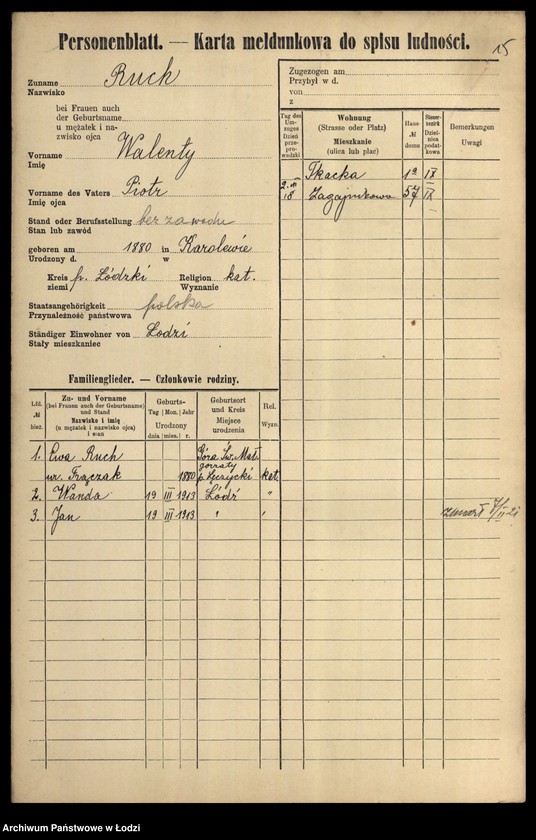 Personenblatt. — Karta meldunkowa do spisu ludności.
15
Zuname Ruch
Nazwisko
bei Frauen auch
der Geburtsname
u mężatek i na-
zwisko ojca
Vorname Walenty
Imię
Vorname des Vaters Piotr
Imię ojca
Stand oder Berufsstellung bez zawodu
Stan lub zawód
geboren am 1880 in Karolewie
Urodzony d. w
Kreis p. Łódzki Religion kat.
ziemi Wyznanie
Staatsangehörigkeit polska
Przynależność państwowa
Ständiger Einwohner von Łodzi
Stały mieszkaniec
Zugezogen am
Przybył w d.
von
z
Tag des Um-zuges Dzień prze-pro-wadzki
Wohnung (Strasse oder Platz) Mieszkanie (ulica lub plac)
Haus- № domu
Steuer-bezirk Dziel-nica podat-kowa
Bemerkungen Uwagi
Tkacka 12 IX
18 Zagajnikowa 57 IX
Familienglieder. — Członkowie rodziny.
Lfd. № bież.
Zu- und Vorname (bei Frauen auch der Geburtsname) und Stand Nazwisko i imię (u mężatek i nazwisko ojca) i stan
Geburts- Tag Mon. Jahr Urodzony dnia mies. r.
Geburtsort und Kreis Miejsce urodzenia
Rel. Wyzn.
1. Ewa Ruch Góra Św. Małgorzaty
ur. Frączak 1880 p. Łęczycki kat.
2. Wanda 19 III 1913 Łódź "
3. Jan 19 III 1913 " "
zmarł
Archiwum Państwowe w Łodzi